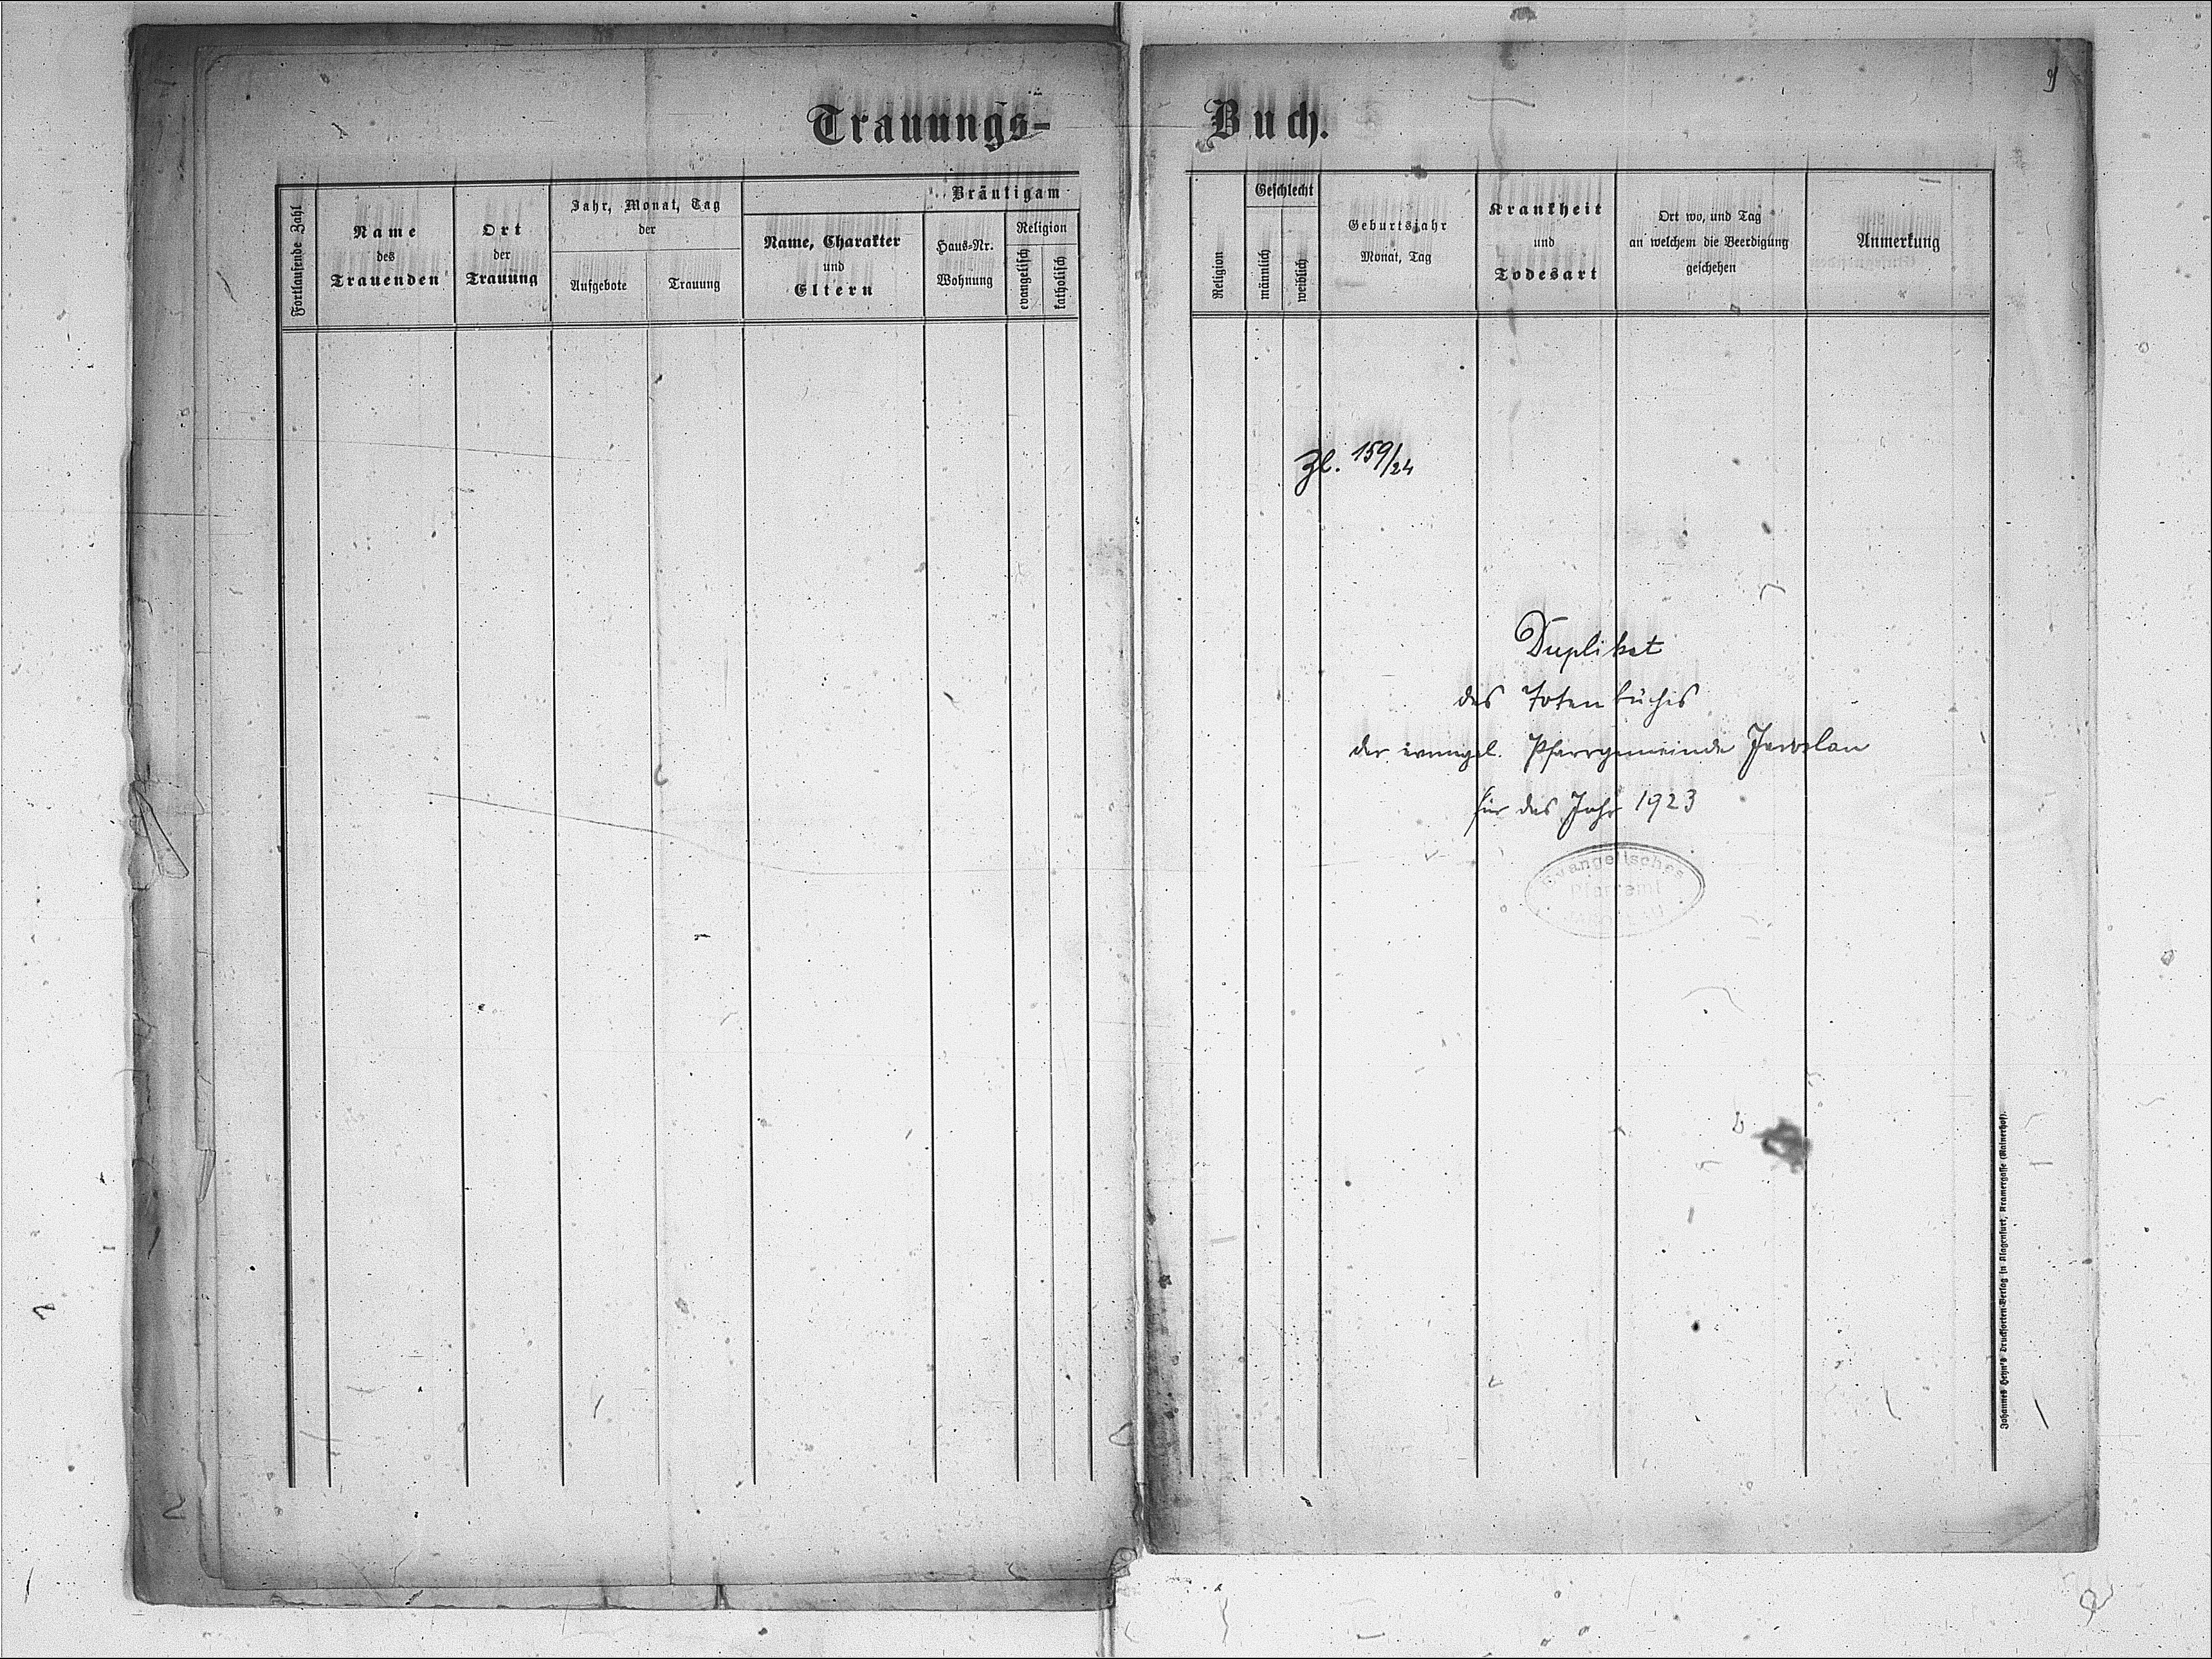 Trauungs-
Fortlaufende Zahl
Name
des
Trauenden
Ort
der
Trauung
Jahr, Monat, Tag
der
Aufgebote
Trauung
Bräutigam
Name, Charakter
und
Eltern
Haus-Nr.
Wohnung
Religion
evangelisch
katholisch
Buch.
9
Religion
Geschlecht
männlich
weiblich
Geburtsjahr
Monat, Tag
Krankheit
und
Todesart
Ort wo, und Tag
an welchem die Beerdigung
geschehen
Anmerkung
Zl. 159/24
Duplikat
des Totenbuches
der evangel. Pfarrgemeinde Jaroslau
für das Jahr 1923
Evangelisches
Pfarramt
Johannes Heyn's Drucksorten-Verlag in Klagenfurt, Kramergasse (Rainerhof).